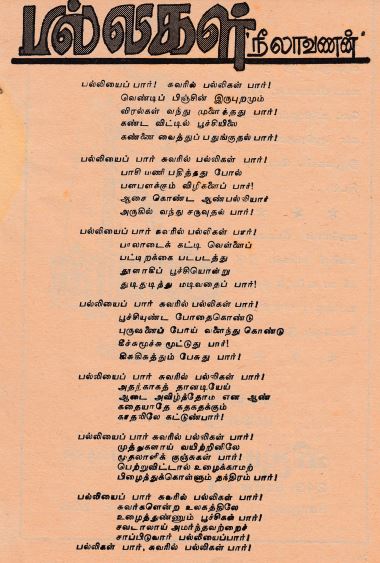 பல்லிகள்
நீலாவணன்
பல்லியைப் பார்! சுவரில் பல்லிகள் பார்!
வெண்டிப் பிஞ்சின் இருபுறமும்
விரல்கள் வந்து முளைத்தது பார்!
கண்ட விட்டில் பூச்சியிலே
கண்ணை வைத்துப் பதுங்குதல் பார்!
பல்லியைப் பார் சுவரில் பல்லிகள் பார்!
பாசி மணி பதித்தது போல்
பளபளக்கும் விழிகளைப் பார்!
ஆசை கொண்ட ஆண்பல்லியாச்
அருகில் வந்து சருவுதல் பார்!
பல்லியைப் பார் சுவரில் பல்லிகள் பார்!
பாலாடைக் கட்டி வெள்ளைப்
பட்டிறக்கை படபடத்து
தூளாகிப் பூச்சியொன்று
துடிதுடித்து மடிவதைப் பார்!
பல்லியைப் பார் சுவரில் பல்லிகள் பார்!
பூச்சியுண்ட போதைகொண்டு
புருவனைப் போய் வளைந்து கொண்டு
கீச்சுமூச்சு மூட்டுது பார்!
கிசுகிசுத்தும் பேசுது பார்!
பல்லியைப் பார் சுவரில் பல்லிகள் பார்!
அதற்காகத் தானடியேய்
ஆடை அவிழ்த்தோம் என ஆண்
கதையாதே கதகதக்கும்
காதலிலே கட்டுண்பார்!
பல்லியைப் பார் சுவரில் பல்லிகள் பார்!
முத்துகளாய் வயிற்றினிலே
முதலாளிக் குஞ்சுகள் பார்!
பெற்றுவிட்டால் உழைக்காமற்
பிழைத்துக்கொள்ளும் தந்திரம் பார்!
பல்லியைப் பார் சுவரில் பல்லிகள் பார்!
சுவர்களென்ற உலகத்திலே
உழைத்துண்ணும் பூச்சிகள் பார்!
சவடாலாய் அமர்ந்தவற்றைச்
சாப்பிடுவார் பல்லியைப்பார்!
பல்லிகள் பார், சுவரில் பல்லிகள் பார்!